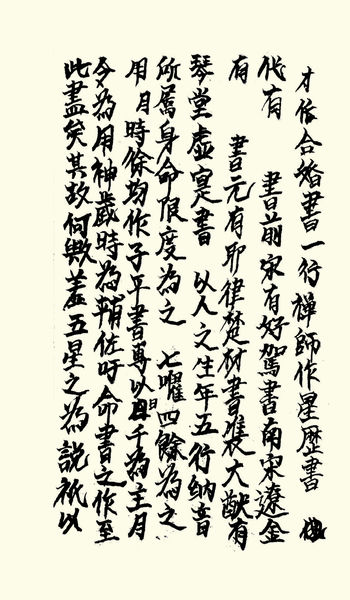 才作合婚書一行禪師作星歷書
代有 書前宋有好駕書南宋遼金
有 書元有耶律楚材書張大猷有
琴堂虛寔書 以人之生年五行納音
所屬身命限度為之 七曜四餘為之
用月時餘均作子平書專以日干為主月
令為用神歲時為輔佐吁命書之作至
此盡矣其故何歟盖五星之為說祇以